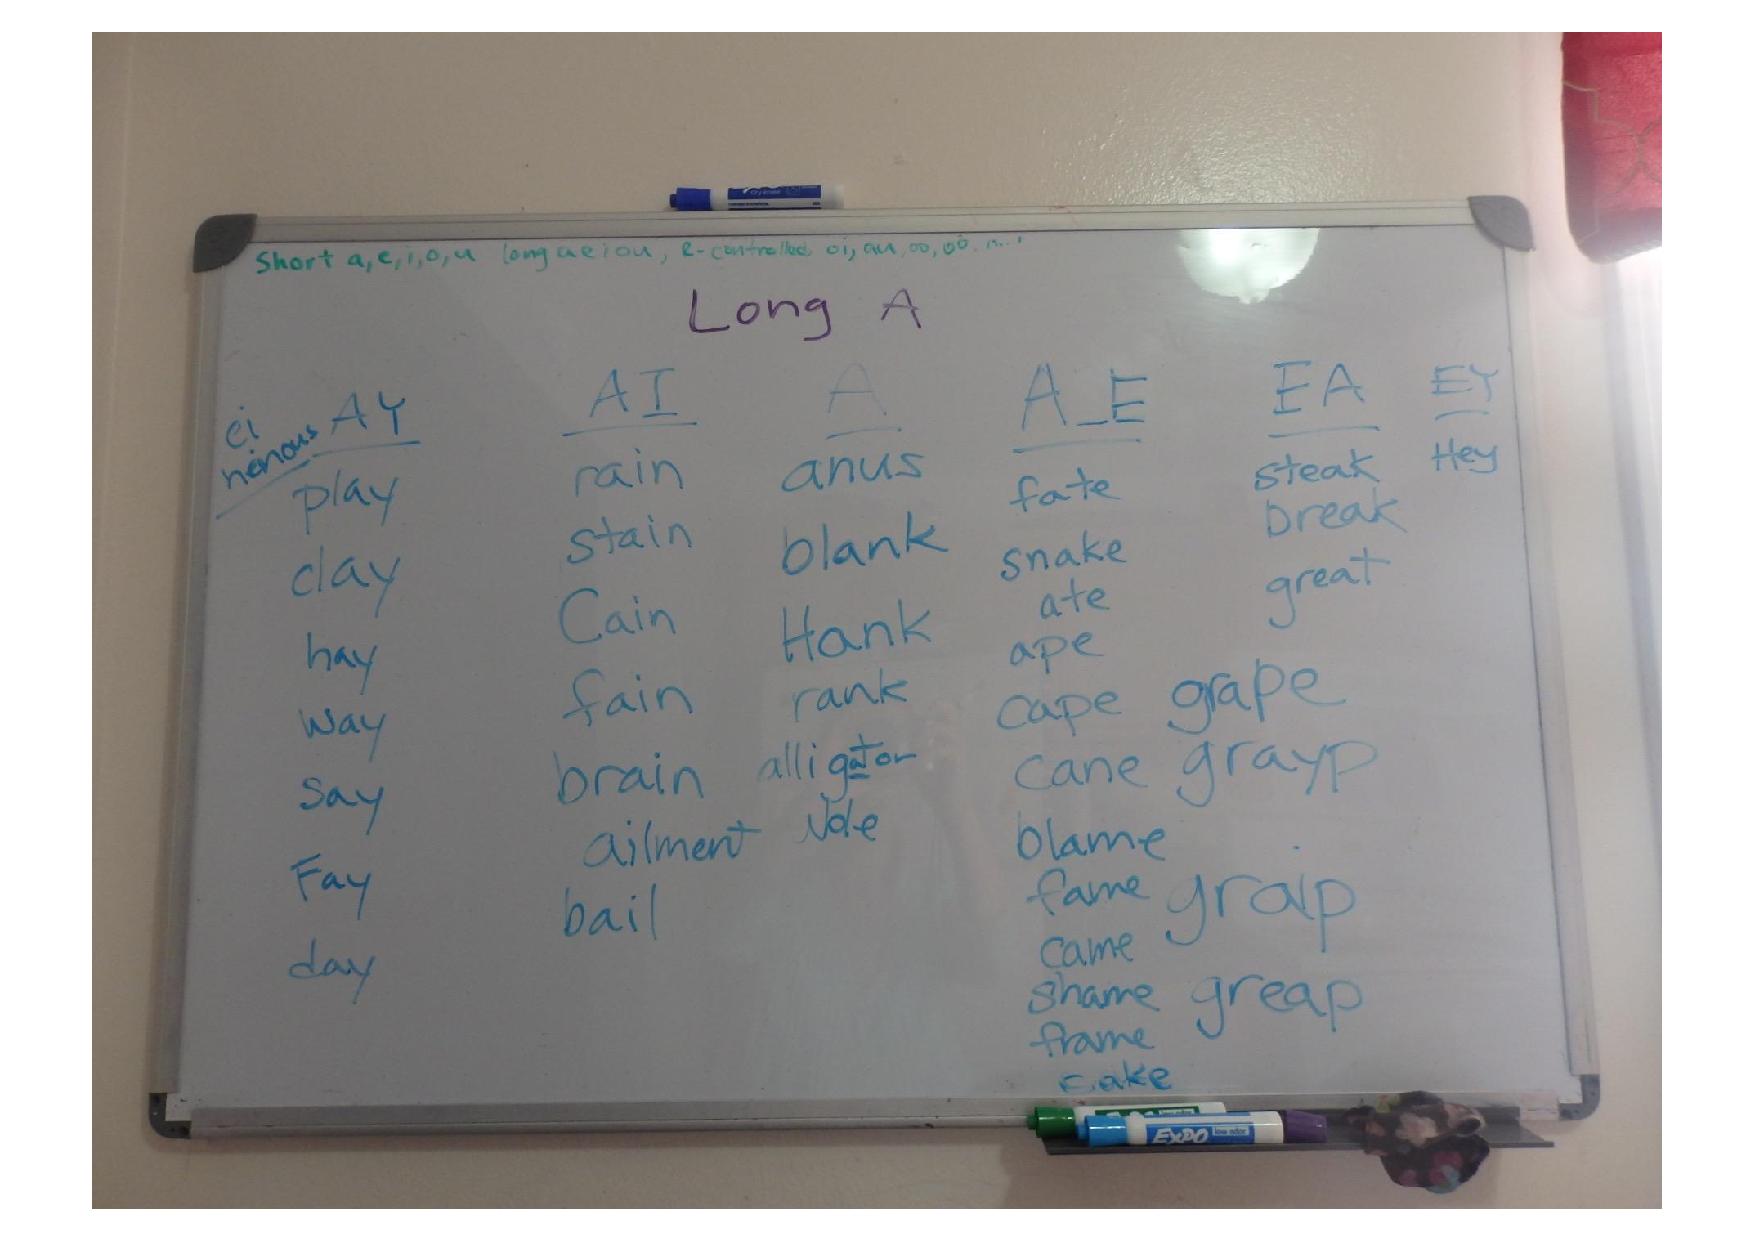 Short a, e, i, o, u long a e i o u, R-controlled, oi, au, oo, oo
Long A
ei
henous
AY
play
clay
hay
way
say
Fay
day
AI
rain
stain
Cain
fain
brain
ailment
bail
A
anus
blank
Hank
rank
alligator
A_E
fate
snake
ate
ape
cape
cane
blame
fame
came
shame
frame
cake
grape
grayp
graip
greap
EA
steak
break
great
EY
Hey
EXPO low odor